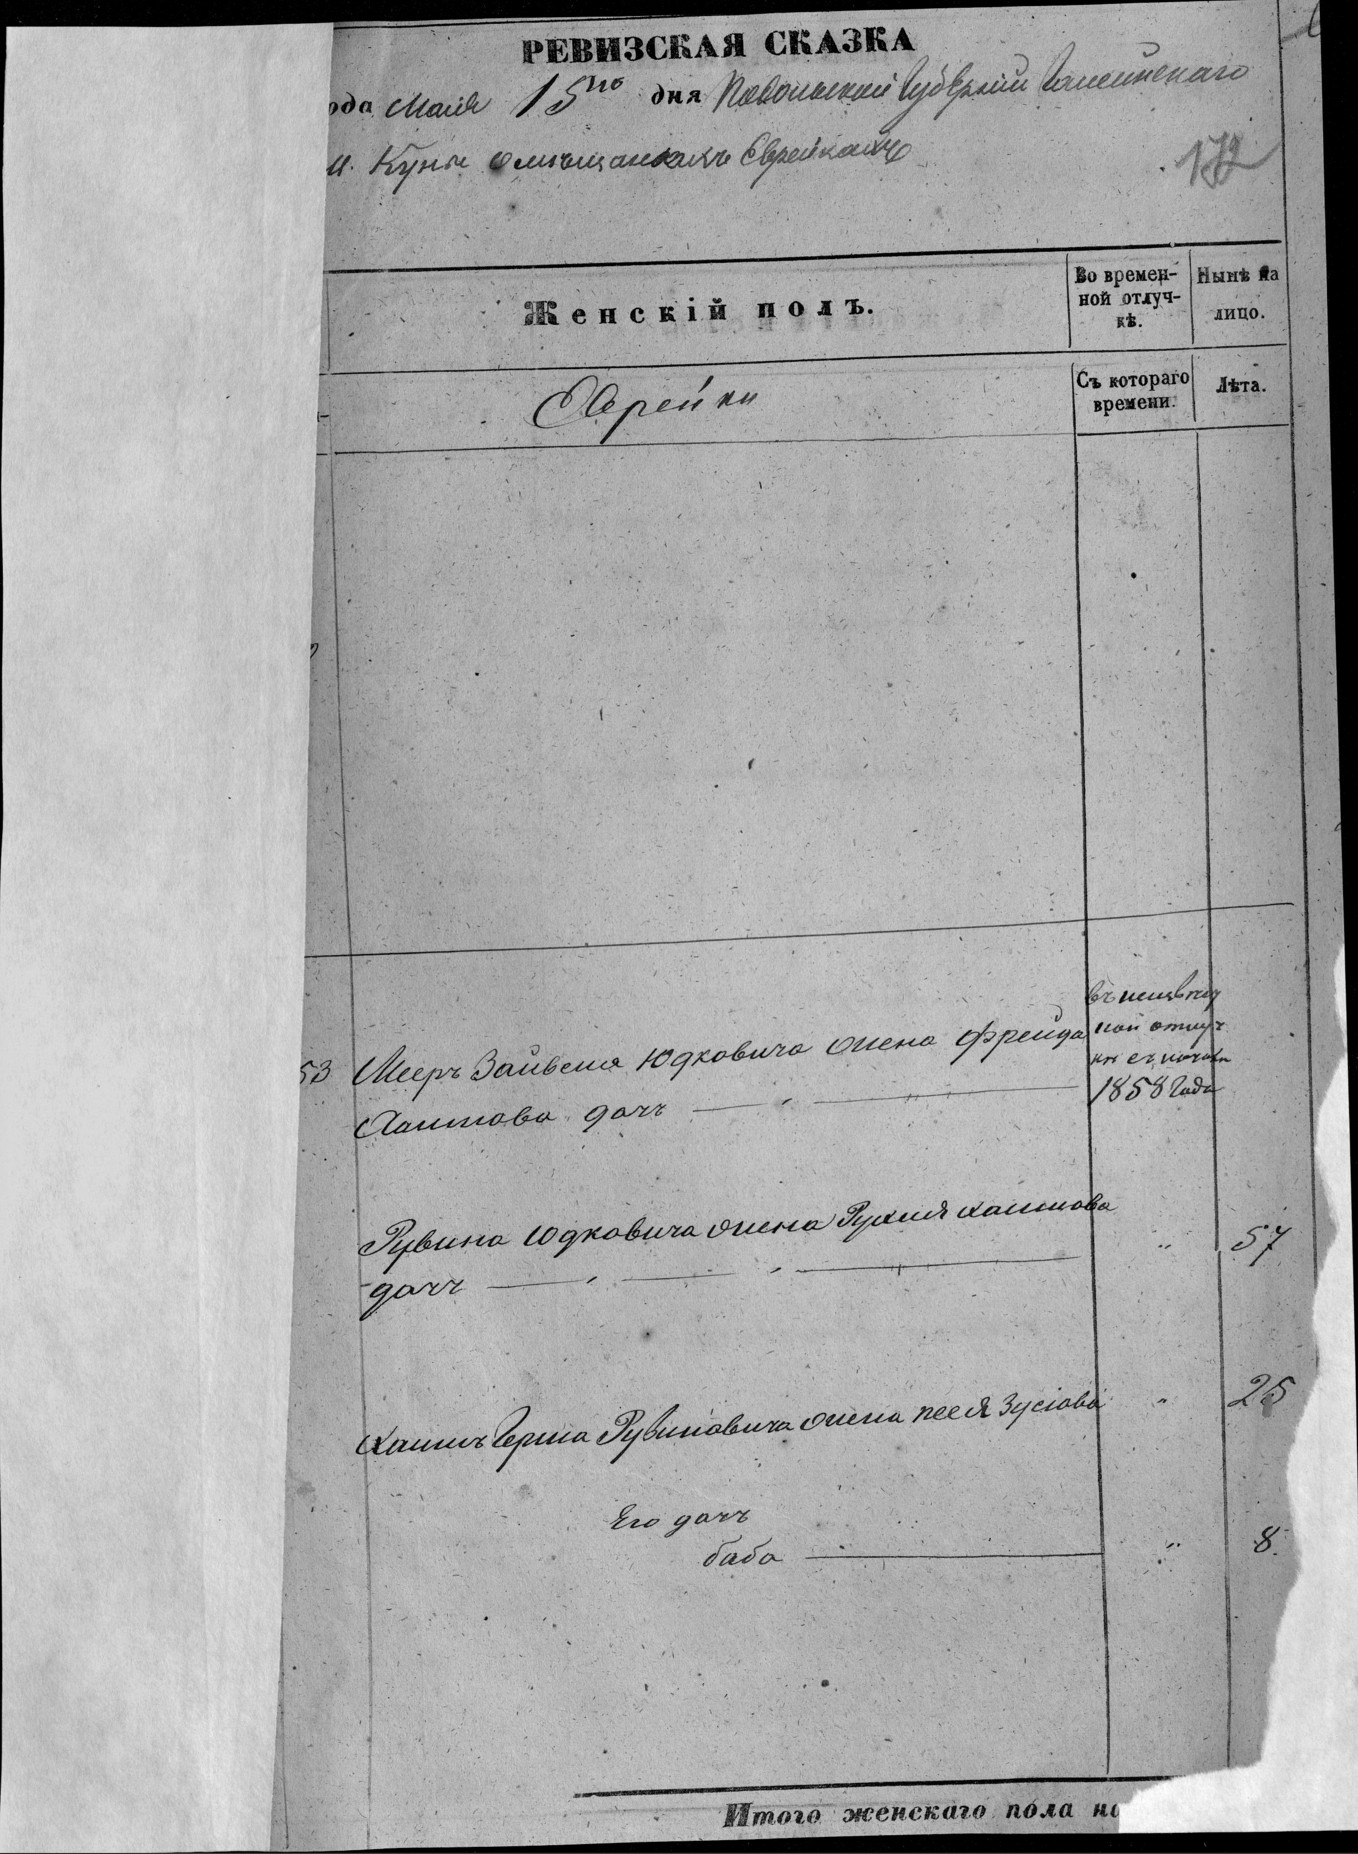 РЕВИЗСКАЯ СКАЗКА
ода Маия 15го дня Подольской Губернии Гайсинскаго
м. Куны о мѣщанкахъ Еврейкахъ
172
Женскій полъ.
Во времен-
ной отлуч-
кѣ.
Нынѣ на
лицо.
Еврейки
Съ котораго
времени.
Лѣта.
53 Мееръ Зайвеля Юдковича жена Фрейда
Хаимова дочь
1858 Года
Рувина Юдковича жена Рухля Хаимова
дочь " 57
Хаимъ Герша Рувиновича жена Песя Зусіова " 25
Его дочь
баба " 8
Итого женскаго пола на